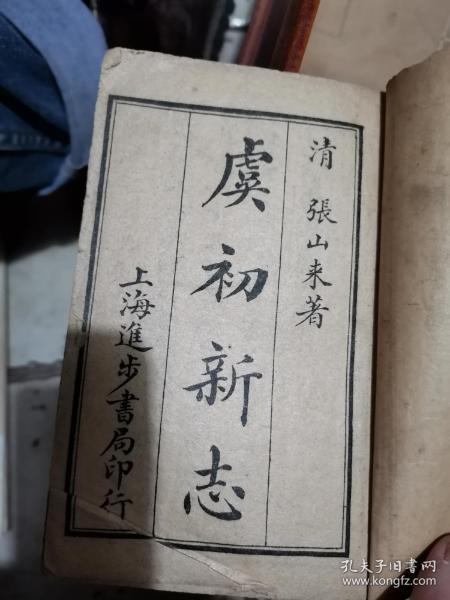 清 張山来著
虞初新志
上海進步書局印行
孔夫子旧书网
www.kongfz.com